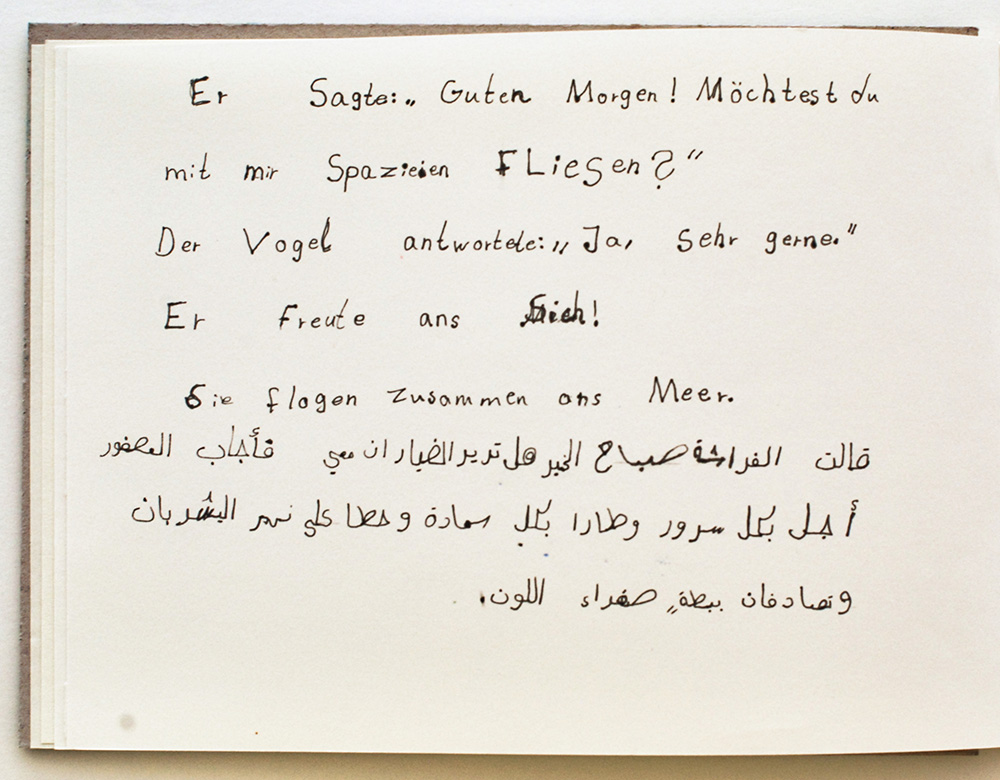 Er Sagte: „ Guten Morgen! Möchtest du
mit mir Spazieren FLiegen?“
Der Vogel antwortete: „Ja, Sehr gerne.“
Er freute ans Sich!
Sie flogen zusammen ans Meer.
قالت الفراشة صباح الخير هل تريد الطيران معي فأجاب العصفور
أجل بكل سرور وطارا بكل سعادة وحطا على نهر البشربان
وتصادفان ببطةٍ صفراء اللون.